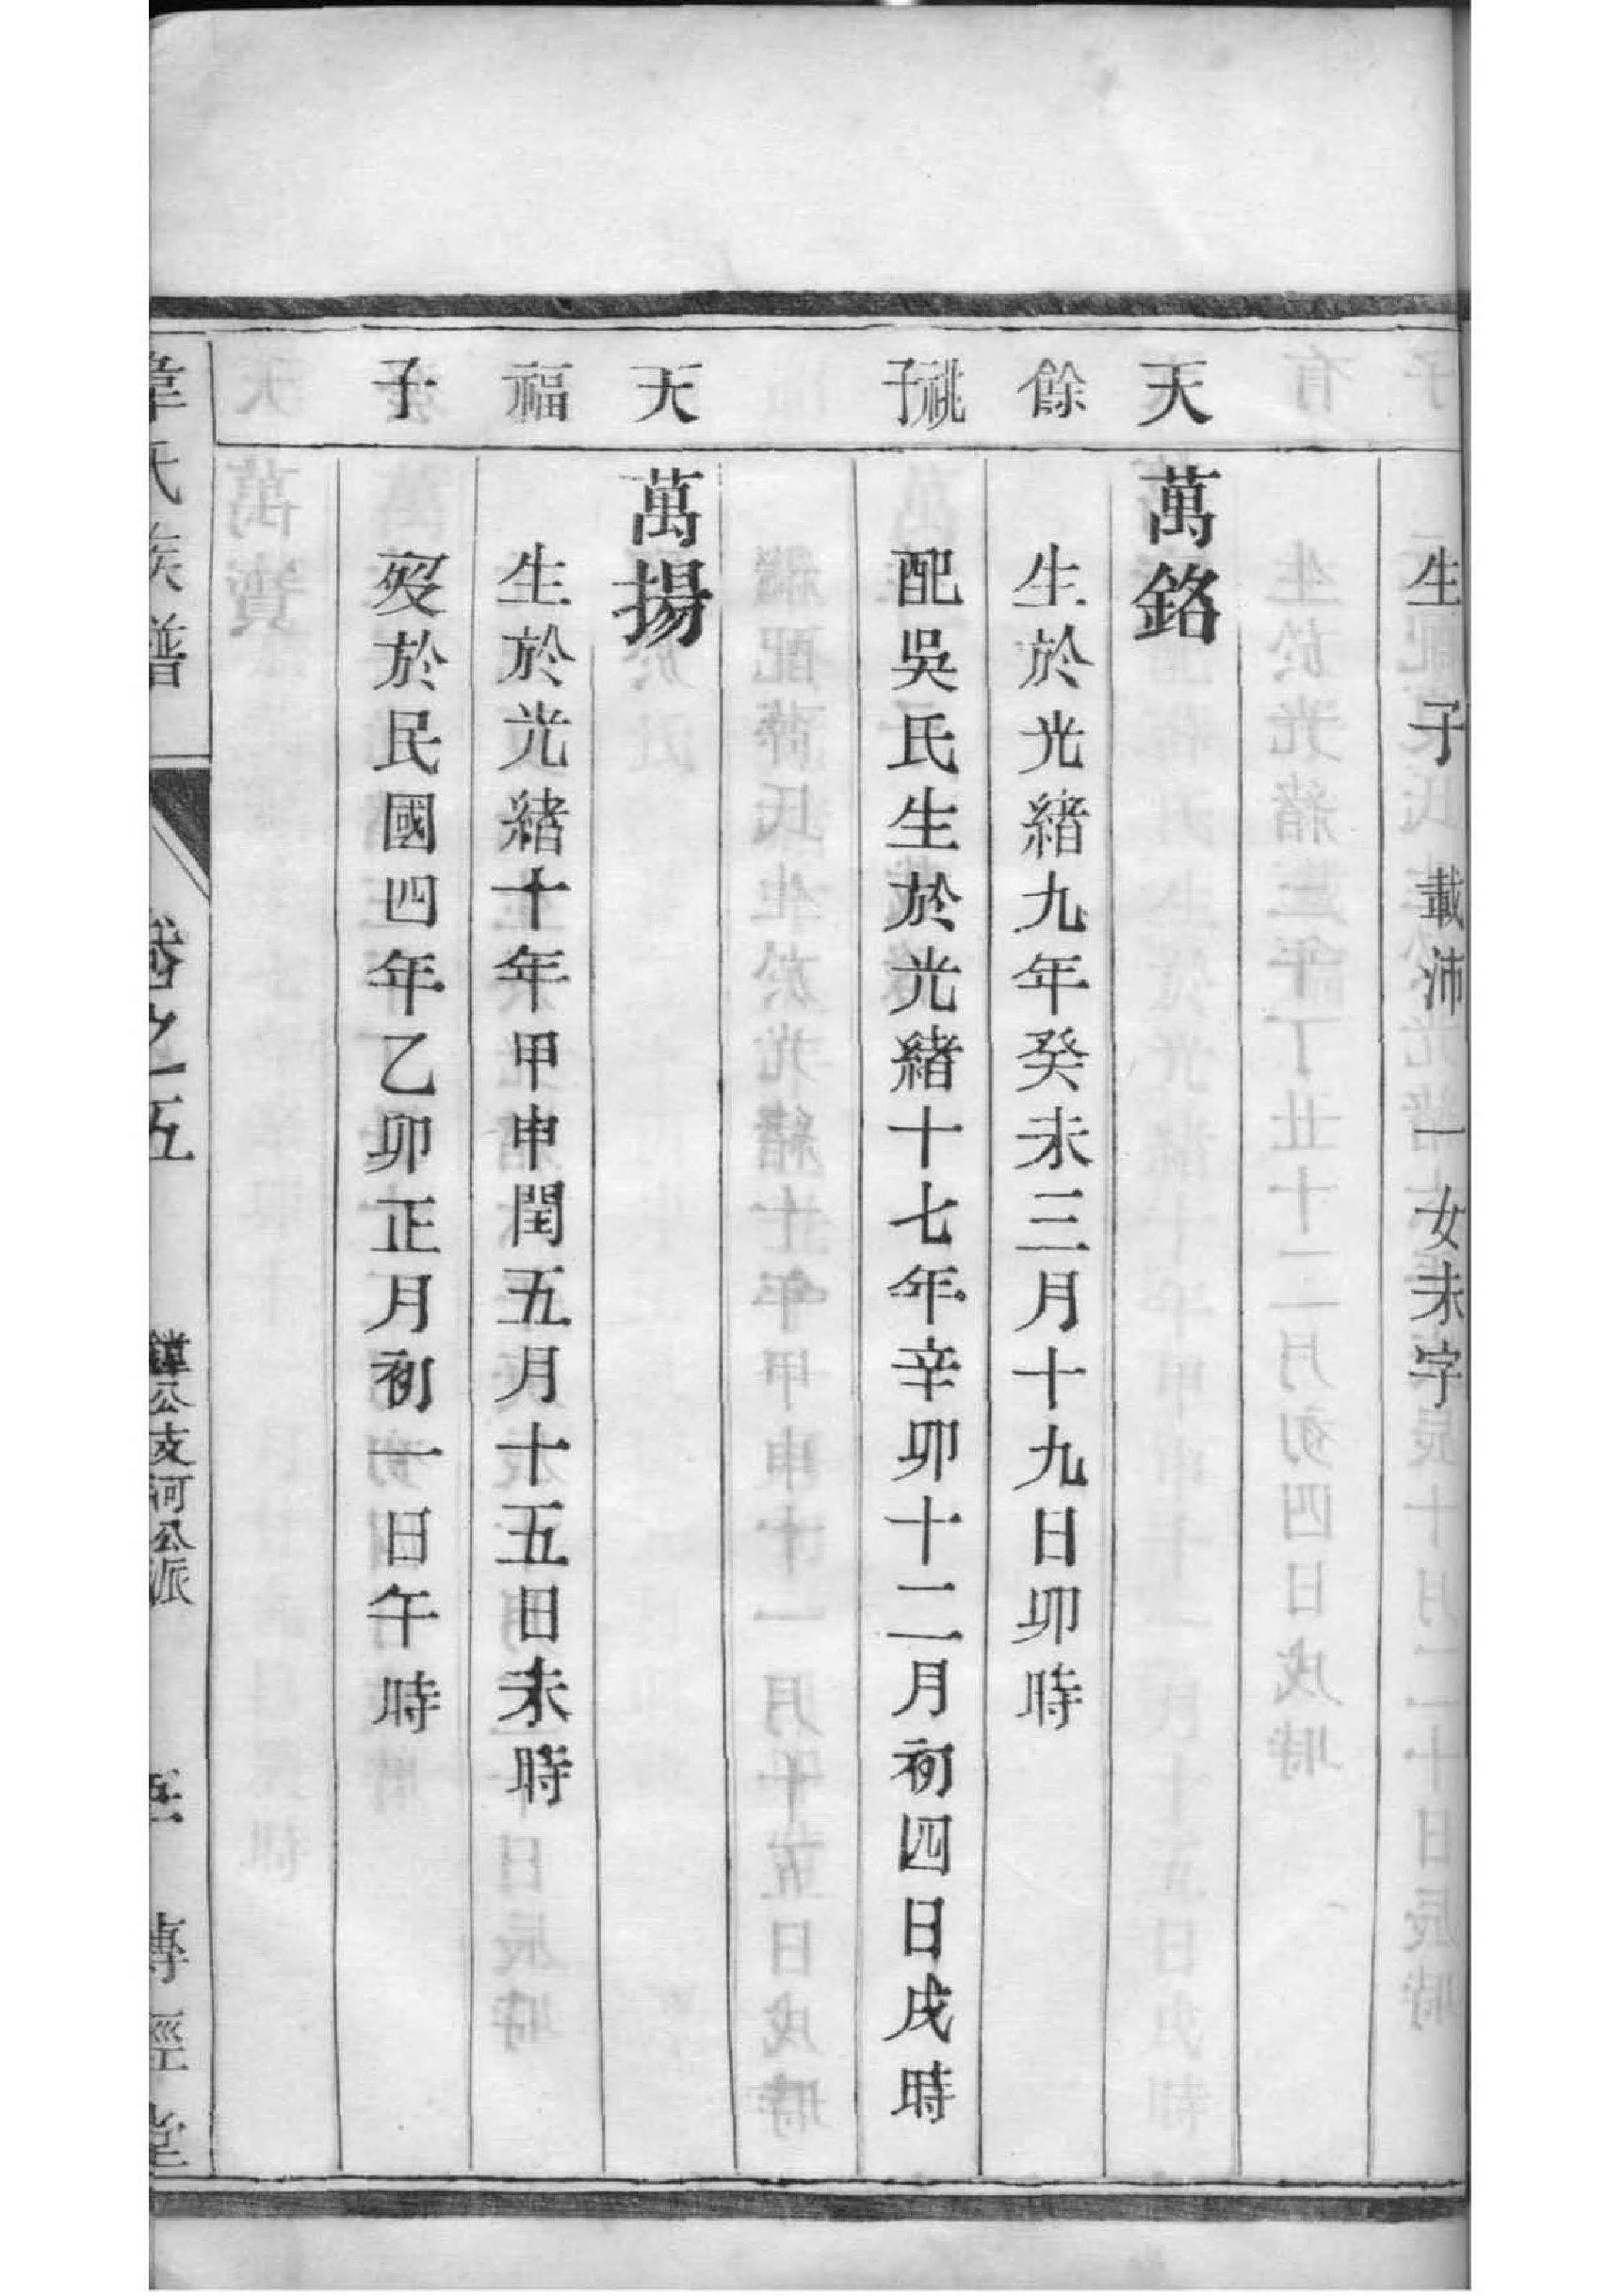 生子 載沛 一女未字
天 萬銘
餘 生於光緒九年癸未三月十九日卯時
祧子 配吳氏生於光緒十七年辛卯十二月初四日戌時
天 萬揚
福 生於光緒十年甲申閏五月十五日未時
子 歿於民國四年乙卯正月初一日午時
韋氏族譜 卷之五 鐸公支河公派 傳經堂